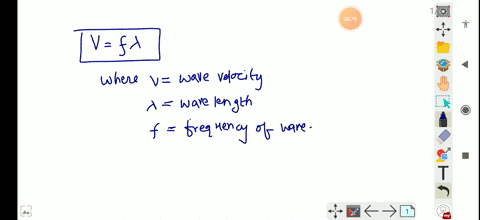 V = fλ
where v = wave velocity
λ = wave length
f = frequency of wave.
1